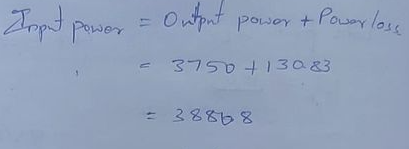 Input power = Output power + Power loss
= 3750 + 130.83
= 38808